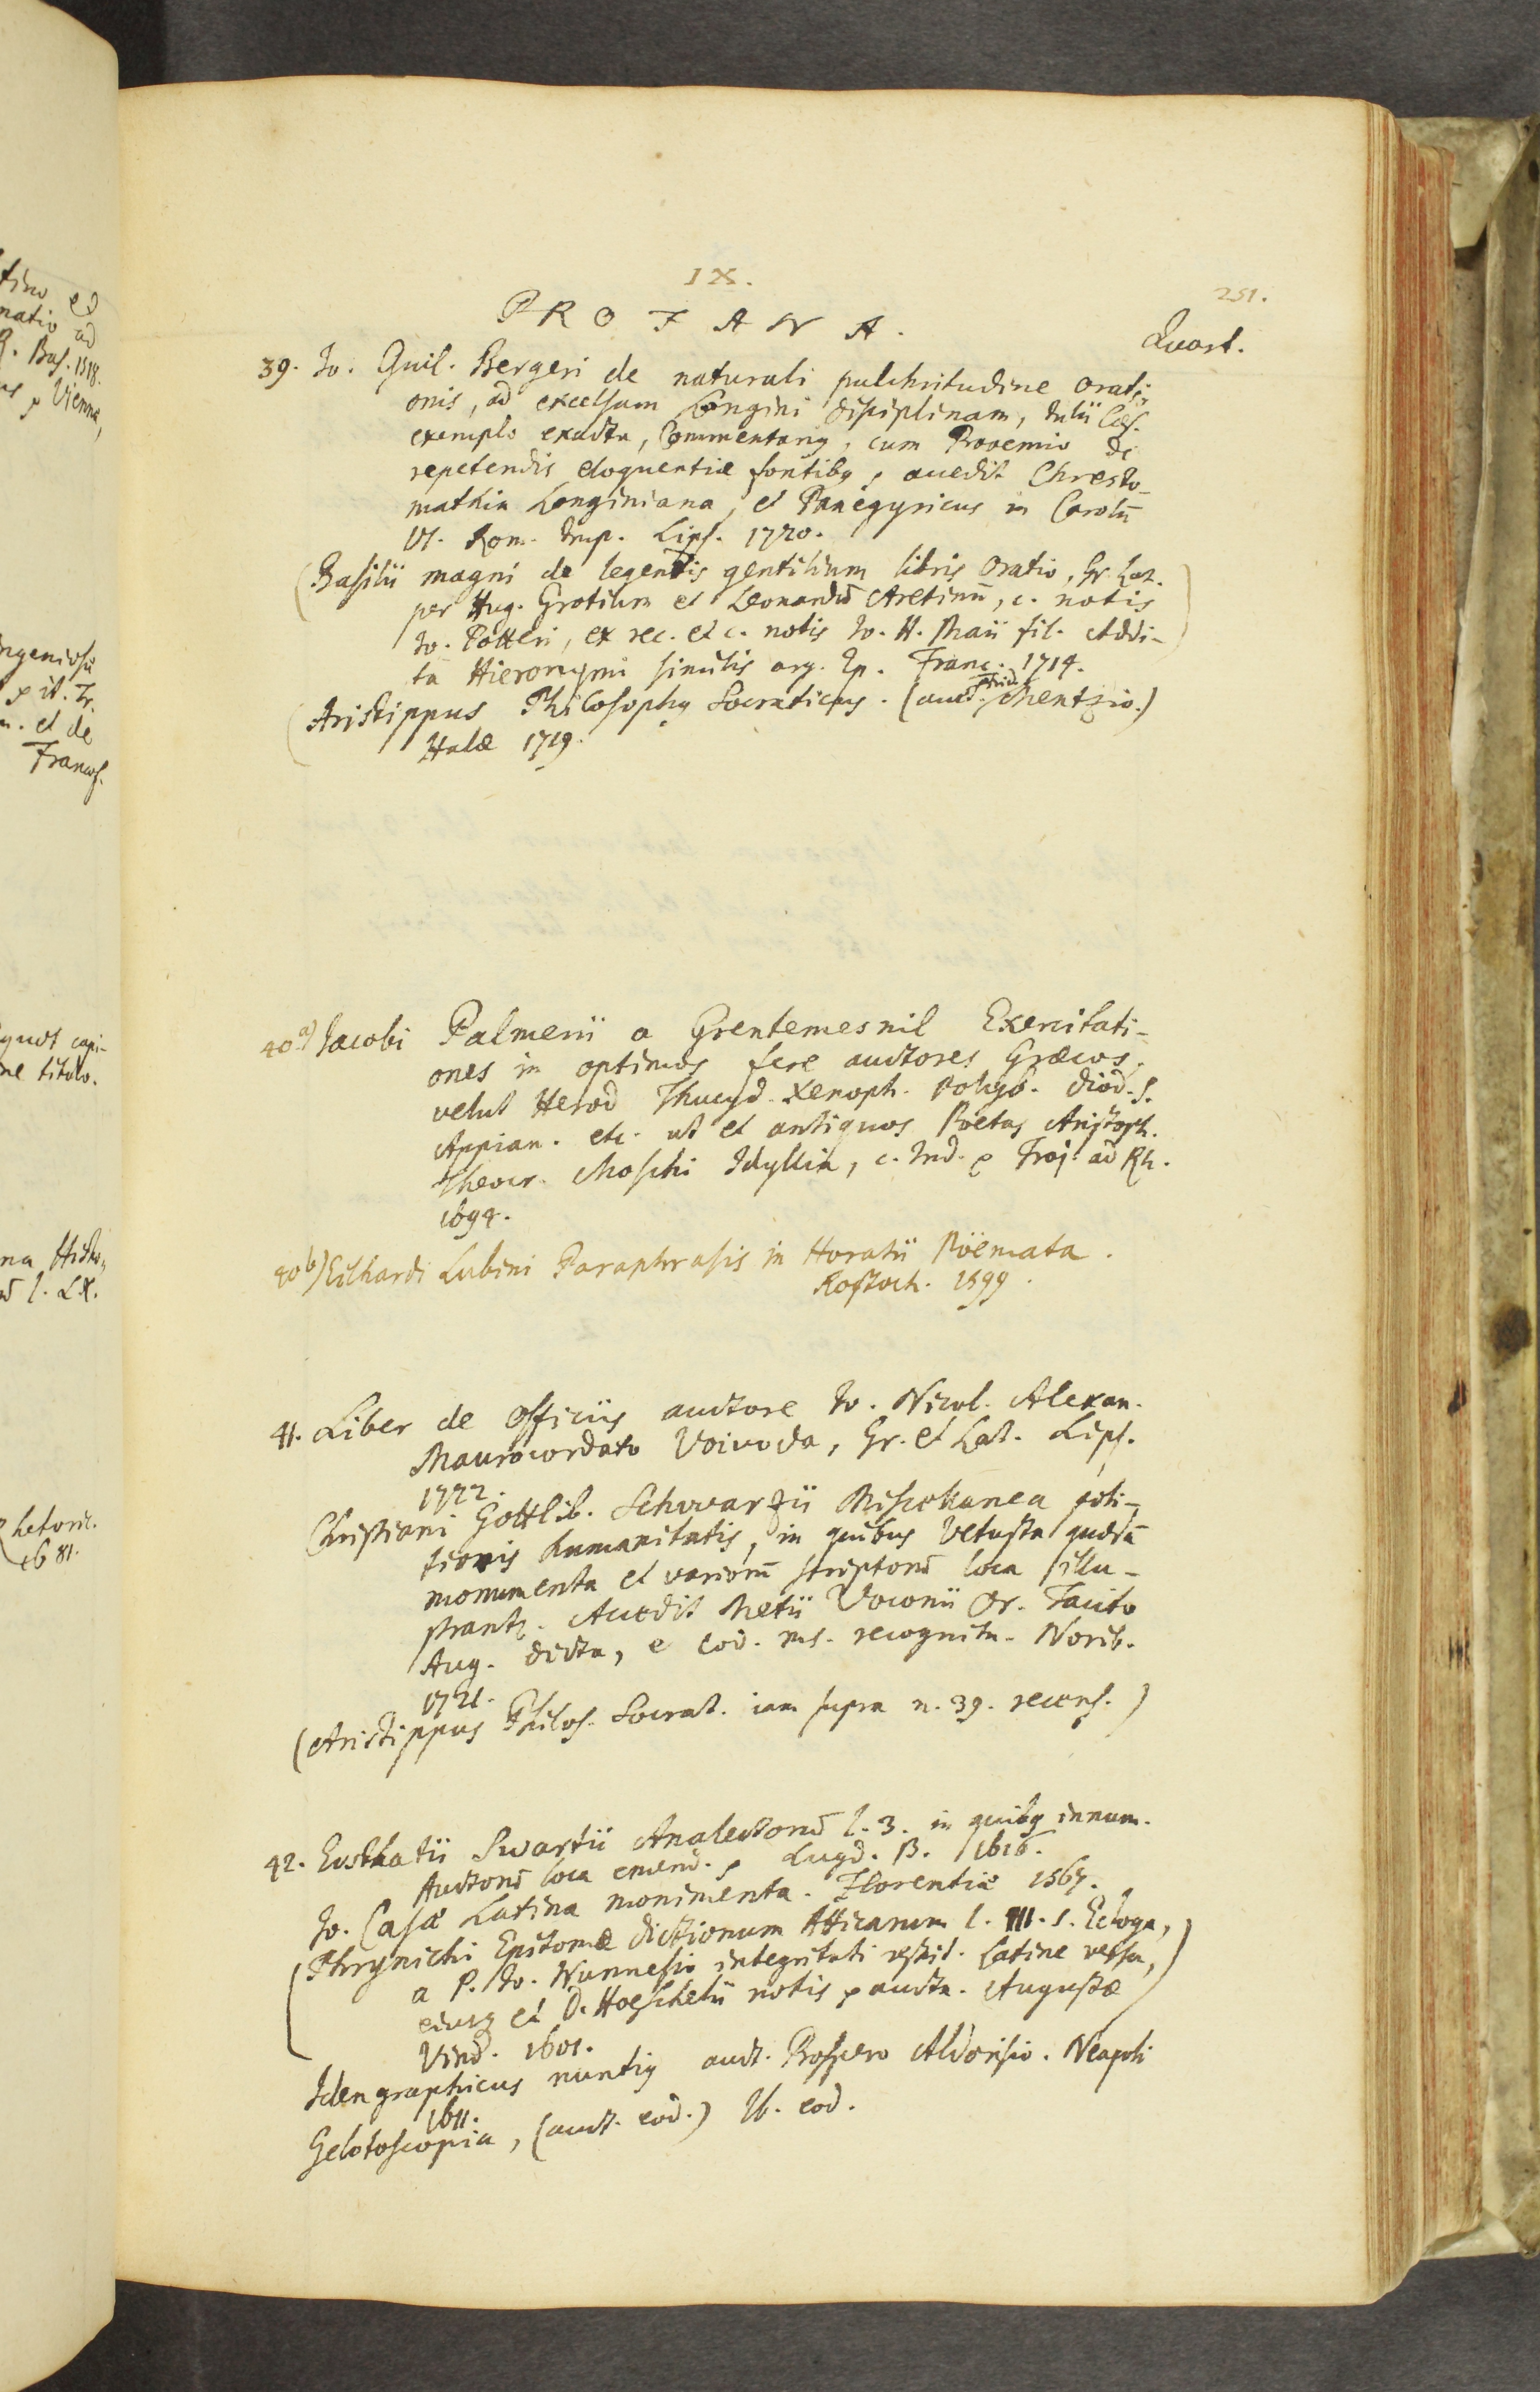 IX.
251.
PROFANA.
Quart.
39. Io. Guil. Bergeri de naturali pulchritudine orati-
onis, ad excelsam Longini disciplinam, Iulii Cæs.
exemplo exacta, Commentarius, cum Prooemio de
repetendis eloquentiæ fontibus, accedit Chresto-
mathia Longiniana, et Panegyricus in Carolū
VI. Rom. Imp. Lips. 1720.
(Basilii magni de legendis gentilium libris Oratio, Gr. Lat.
per Hug. Grotium et Leonardū Aretinū, c. notis
Io. Potteri, ex rec. et c. notis Io. H. Maii fil. Addi-
ta Hieronymi similis arg. Ep. Franc. 1714.)
(Aristippus Philosophus Socraticus. (auct. Frid. Mentzio.)
Halæ 1719.
40 a) Iacobi Palmerii a Grentemesnil Exercitati-
ones in optimos fere auctores Græcos,
velut Herod Thucyd. Xenoph. Polyb. Diod. S.
Appian. etc. ut et antiquos Poetas Aristoph.
Theocr. Moschi Idyllia, c. Ind. Traj. ad Rh.
1694.
40 b) Eilhardi Lubini Paraphrasis in Horatii Poëmata.
Rostoch. 1599.
41. Liber de Officiis auctore Io. Nicol. Alexan.
Maurocordato Voivoda, Gr. et Lat. Lips.
1722.
Christiani Gottlib. Schwarzii Miscellanea poli-
tioris humanitatis, in quibus Vetusta quædā
monumenta et variorū scriptorū loca illu-
strantr. Accedit Metii Voconii Or. Tacito
Aug. dicta, e cod. ms. recognita. Norib.
1721.
(Aristippus Philos. Socrat. iam supra n. 39. recens.)
42. Eustkatii Swartii Analectorū l. 3. in quibus innum.
Auctorū loca emend. Lugd. B. 1616.
Io. Casæ Latina monimenta. Florentiæ 1567.
(Phrynichi Epitomæ dictionum Atticarum l. III. s. Ecloga,
a P. Io. Nunnesio integritati restit. Latine versa,
eiusq et D. Hoeschelii notis aucta. Augustæ
Vind. 1601.)
Idengraphicus nuntius auct. Prospero Aldorisio. Neapoli
1611.
Gelotoscopia, (auct. eod.) Ib. eod.